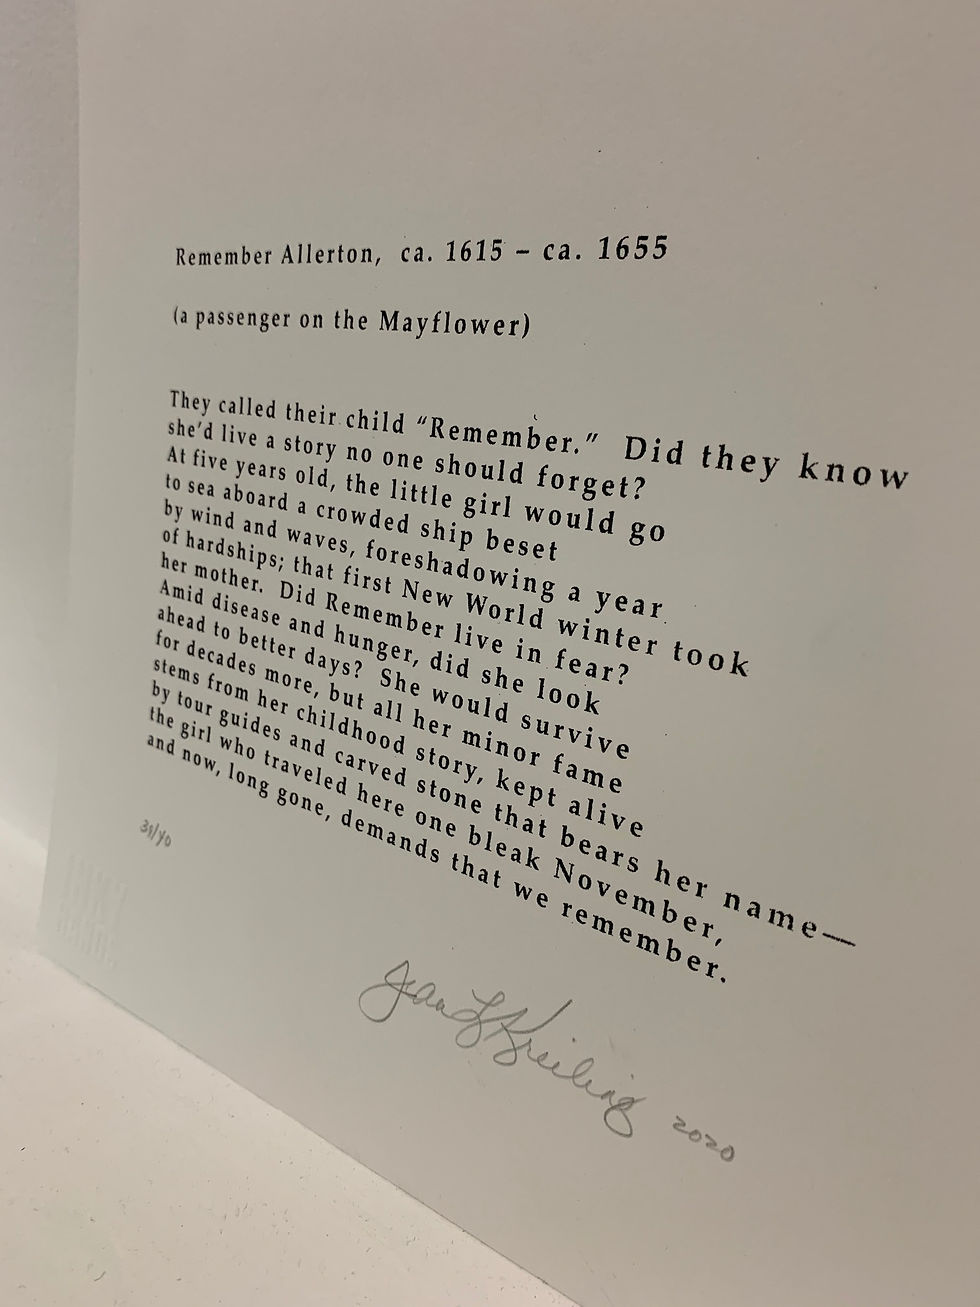 Remember Allerton, ca. 1615 – ca. 1655
(a passenger on the Mayflower)
They called their child “Remember.” Did they know
she’d live a story no one should forget?
At five years old, the little girl would go
to sea aboard a crowded ship beset
by wind and waves, foreshadowing a year
of hardships; that first New World winter took
her mother. Did Remember live in fear?
Amid disease and hunger, did she look
ahead to better days? She would survive
for decades more, but all her minor fame
stems from her childhood story, kept alive
by tour guides and carved stone that bears her name—
the girl who traveled here one bleak November,
and now, long gone, demands that we remember.
Jean L Kreiling 2020